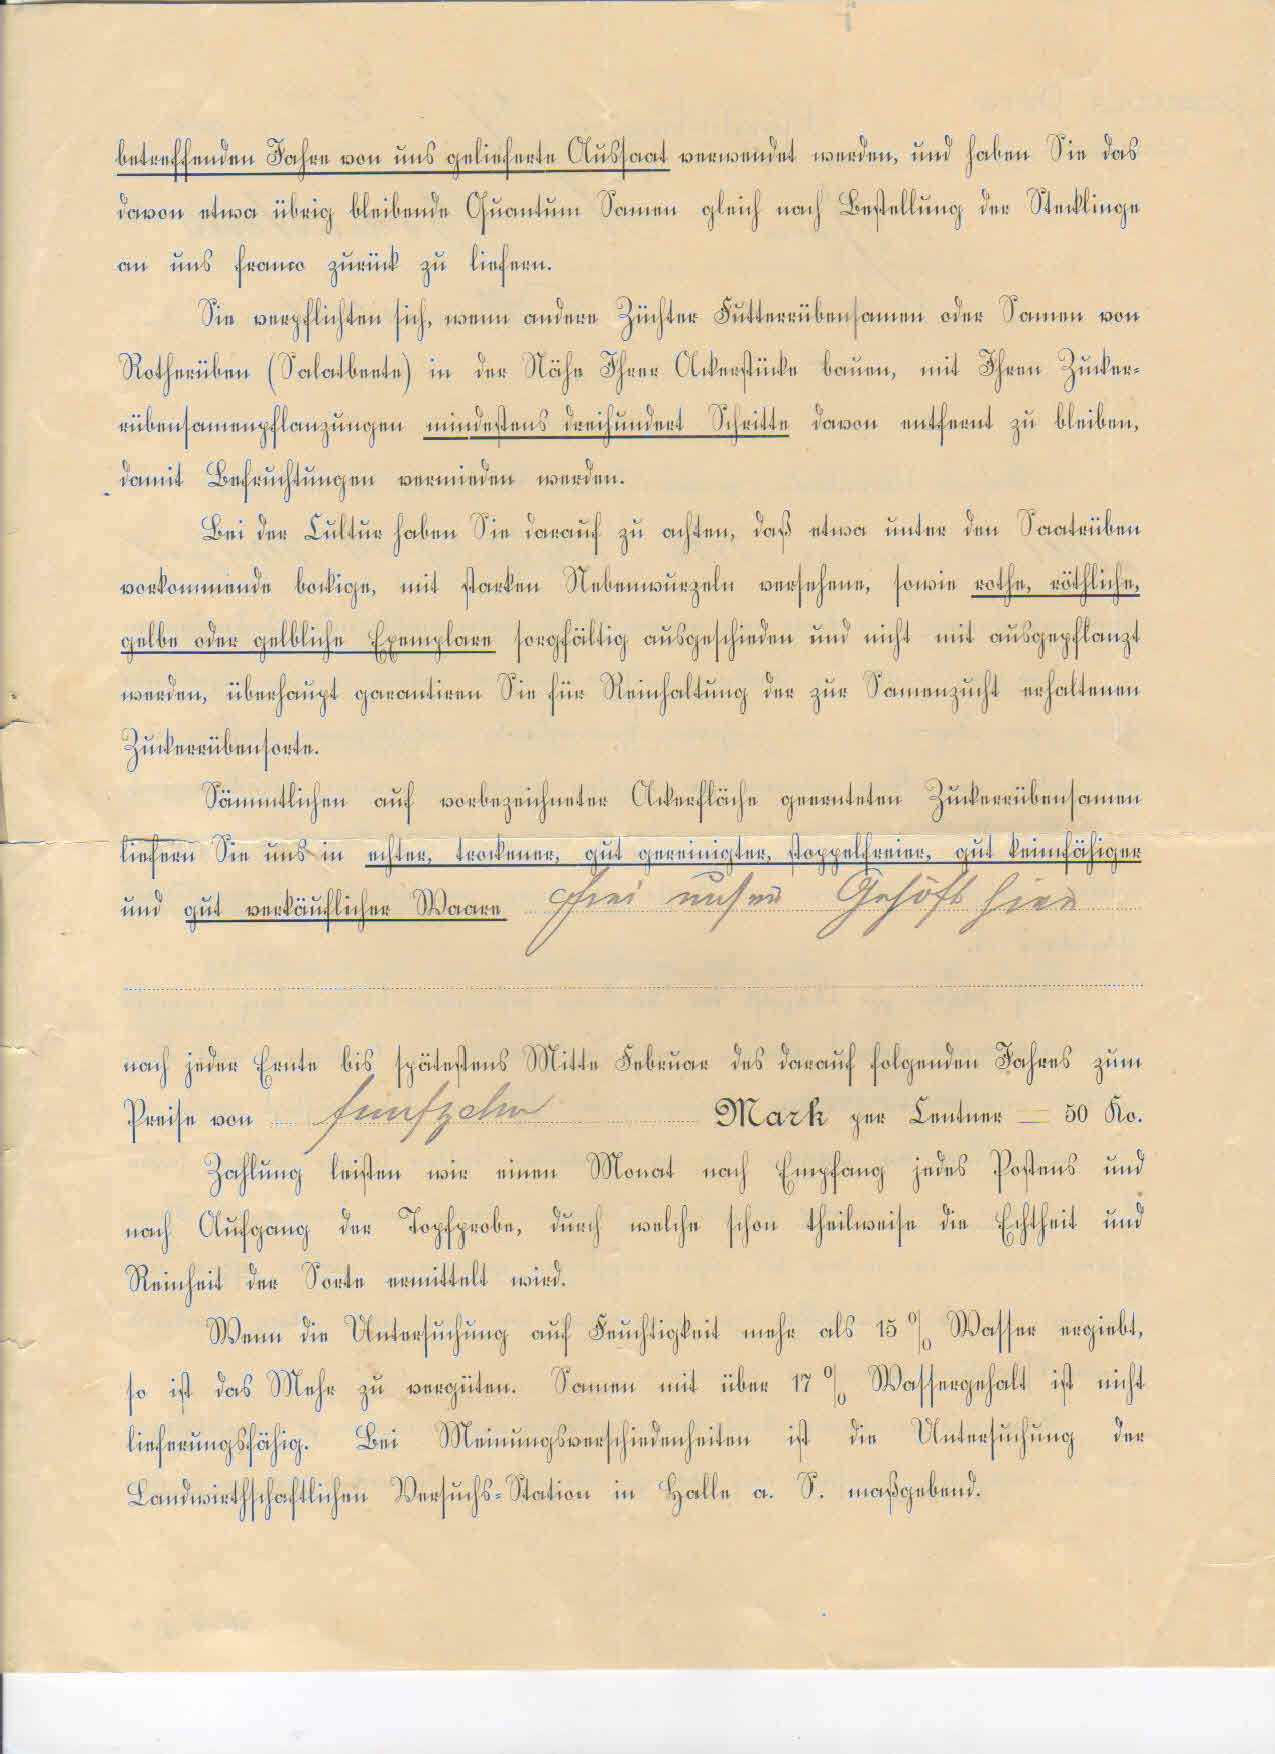 betreffenden Jahre von uns gelieferte Aussaat verwendet werden, und haben Sie das
davon etwa übrig bleibende Quantum Samen gleich nach Bestellung der Stecklinge
an uns franco zurück zu liefern.
Sie verpflichten sich, wenn andere Züchter Futterrübensamen oder Samen von
Rotherüben (Salatbeete) in der Nähe Ihrer Ackerstücke bauen, mit Ihren Zucker-
rübensamenpflanzungen mindestens dreihundert Schritte davon entfernt zu bleiben,
damit Befruchtungen vermieden werden.
Bei der Cultur haben Sie darauf zu achten, daß etwa unter den Saatrüben
vorkommende bockige, mit starken Nebenwurzeln versehene, sowie rothe, röthliche,
gelbe oder gelbliche Exemplare sorgfältig ausgeschieden und nicht mit ausgepflanzt
werden, überhaupt garantiren Sie für Reinhaltung der zur Samenzucht erhaltenen
Zuckerrübensorte.
Sämmtlichen auf vorbezeichneter Ackerfläche geernteten Zuckerrübensamen
liefern Sie uns in echter, trockener, gut gereinigter, stoppelfreier, gut keimfähiger
und gut verkäuflicher Waare frei unser Gehöft hier
nach jeder Ernte bis spätestens Mitte Februar des darauf folgenden Jahres zum
Preise von fünfzehn Mark per Centner = 50 Ko.
Zahlung leisten wir einen Monat nach Empfang jedes Postens und
nach Aufgang der Topfprobe, durch welche schon theilweise die Echtheit und
Reinheit der Sorte ermittelt wird.
Wenn die Untersuchung auf Feuchtigkeit mehr als 15 % Wasser ergiebt,
so ist das Mehr zu vergüten. Samen mit über 17 % Wassergehalt ist nicht
lieferungsfähig. Bei Meinungsverschiedenheiten ist die Untersuchung der
Landwirthschaftlichen Versuchs-Station in Halle a. S. maßgebend.